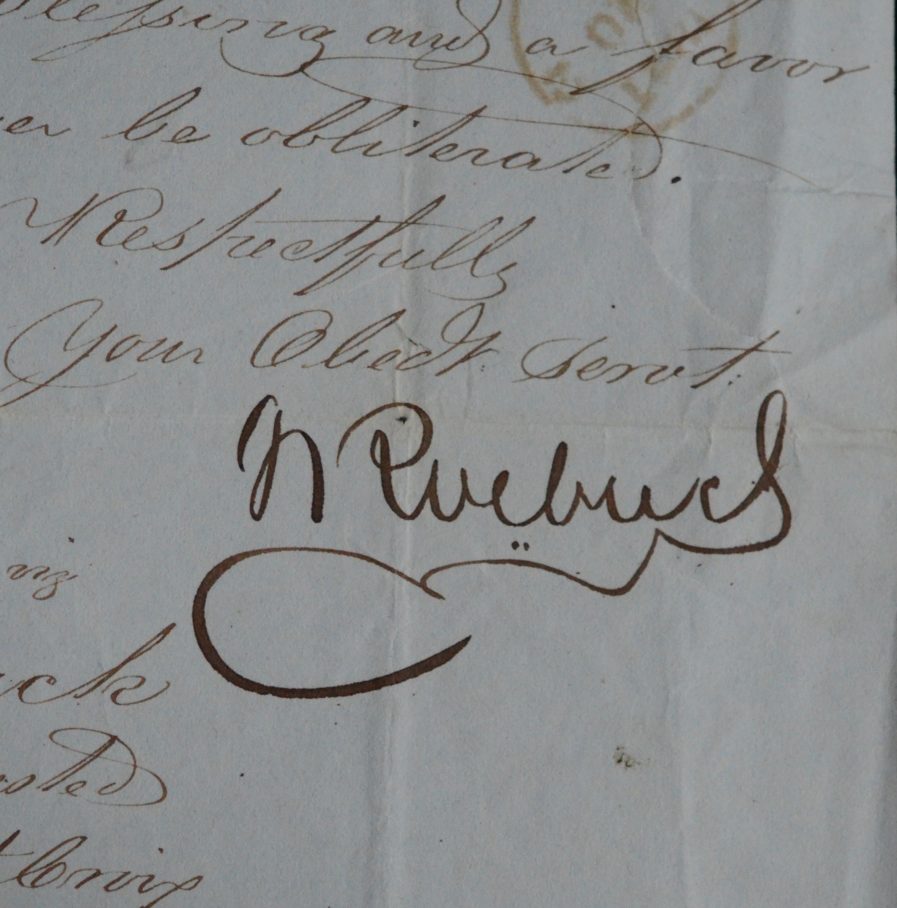 blessing and a favor
be obliterated.
Respectfully
Your Obedt. Servt.
Roebuck
viz
Croix